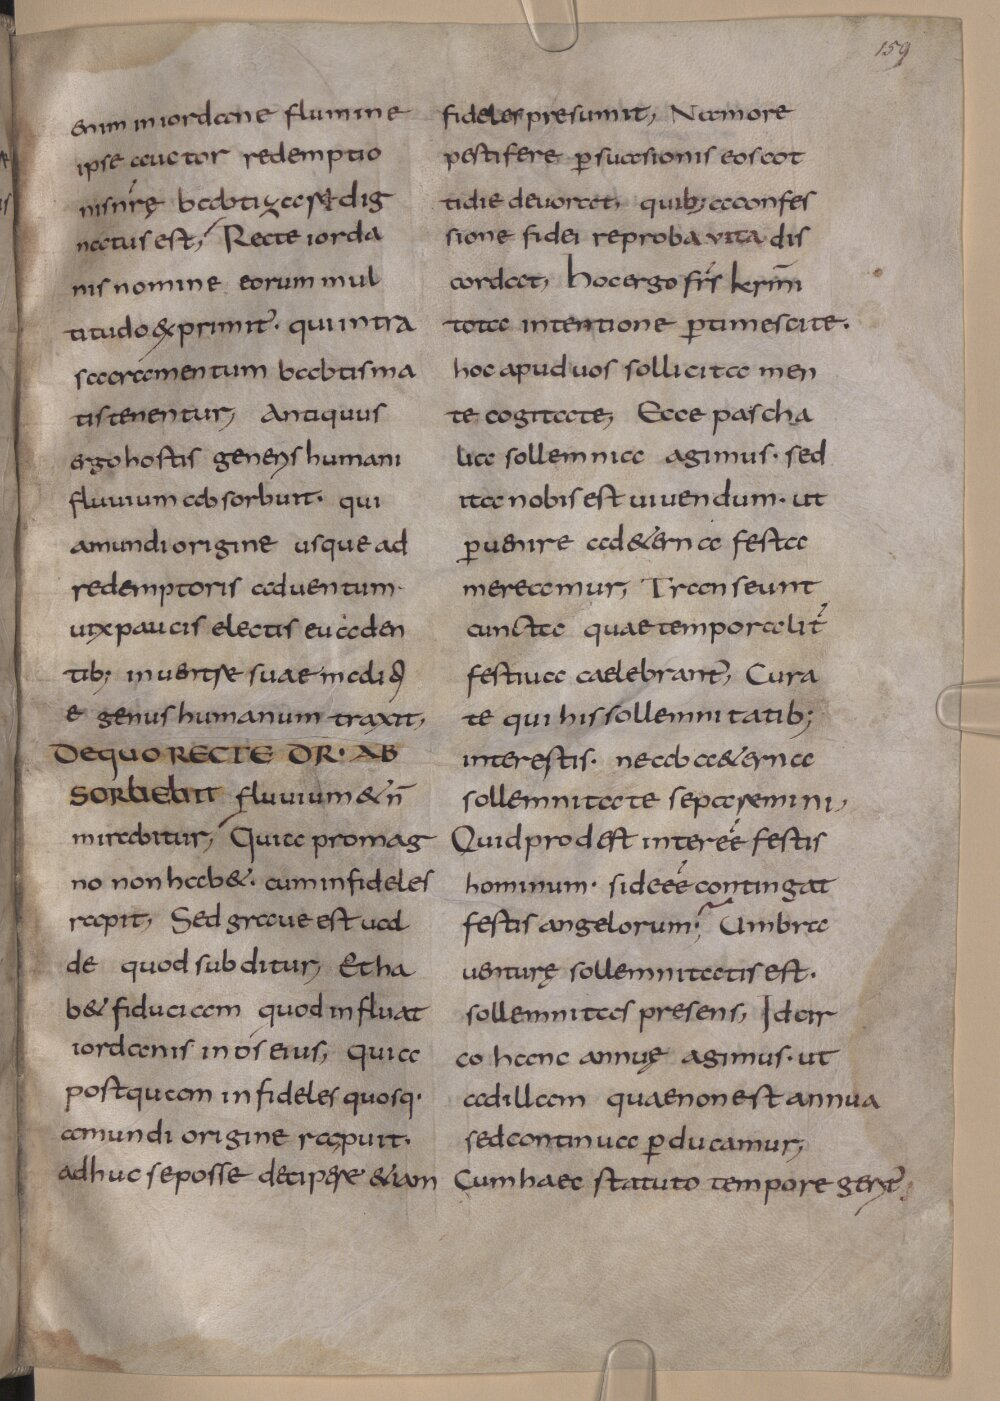 159
enim in iordane flumine
ipse auctor redemptio
nis nrę babtizari dig
natus est, Recte iorda
nis nomine eorum mul
titudo exprimit͛. qui intra
sacramentum babtisma
tis tenentur, Antiquus
ergo hostis generis humani
fluuium absorbuit. qui
a mundi origine usque ad
redemptoris aduentum.
uix paucis electis euaden
tib; in uentre suae malici
e genus humanum traxit,
De quo RECTE DR. AB
SORBEBIT fluuium & n̄
mirabitur, Quia pro mag
no non hab&. cum infideles
rapit, Sed graue est uad
de quod subditur, Et ha
b& fiduciam quod influat
iordanis in os eius, Quia
postquam infideles quosq.
a mundi origine rapuit.
adhuc se posse decipere &iam
fideles presumit, Nam ore
pestifere p̱suasionis eos cot
tidie deuorat, quib; a confes
sione fidei reproba vita dis
cordat, Hoc ergo frs̄ krm̄i
tota intentione p̱timescite.
hoc apud uos sollicita men
te cogitate, Ecce pascha
lia sollemnia agimus. sed
ita nobis est uiuendum. ut
p̱uenire ad &erna festa
mereamur, Transeunt
cuncta quae temporalit͛
festiua caelebrant͛, Cura
te qui his sollemnitatib;
interestis. ne ab a&erna
sollemnitate separemini,
Quid prodest interee festis
hominum. si deee contingat
festis angelorum; Umbra
uenturę sollemnitatis est.
sollemnitas presens, Idcir
co hanc annuę agimus. ut
ad illam quae non est annua
sed continua p̱ducamur,
Cum haec statuto tempore gerit͛